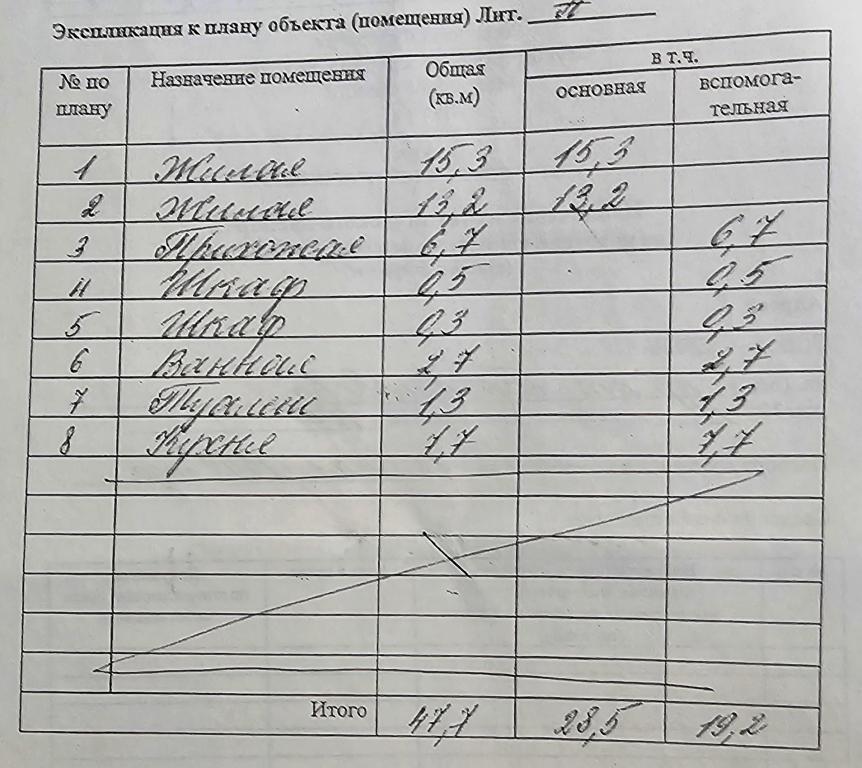 Экспликация к плану объекта (помещения) Лит.
№ по плану Назначение помещения Общая (кв.м) в т.ч.
основная вспомога-
тельная
1 Жилая 15,3 15,3
2 Жилая 13,2 13,2
3 Прихожая 6,7 6,7
4 Шкаф 0,5 0,5
5 Шкаф 0,3 0,3
6 Ванная 2,7 2,7
7 Туалет 1,3 1,3
8 Кухня 7,7 7,7
Итого 47,7 28,5 19,2